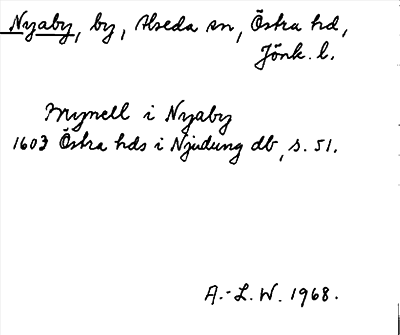 Nyaby, by, Alseda sn, Östra hd,
Jönk. l.
Mynell i Nyaby
1603 Östra hds i Njudung db, s. 51.
A.-L. W. 1968.